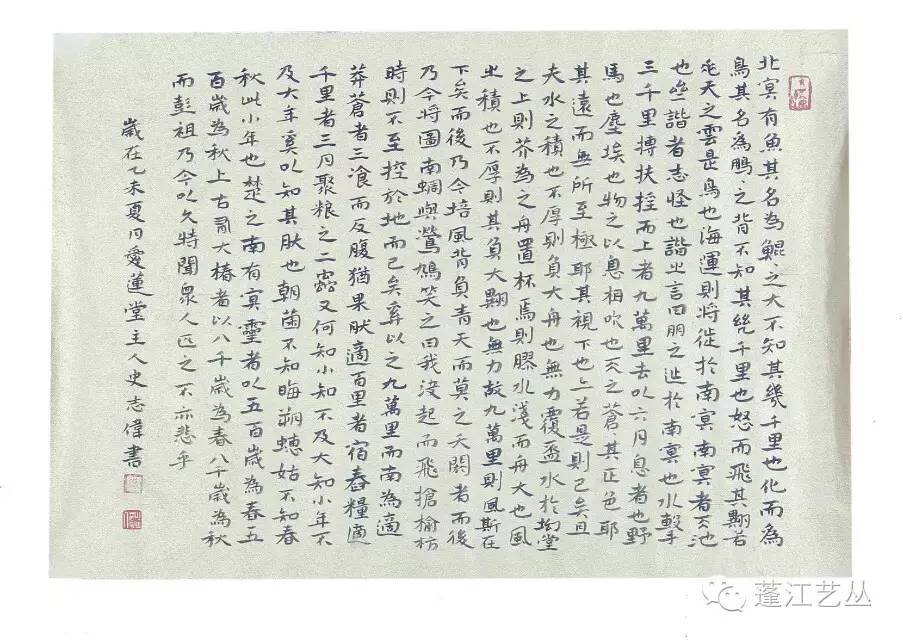 北冥有魚其名為鯤〻之大不知其幾千里也化而為
鳥其名為鵬〻之背不知其幾千里也怒而飛其翼若
垂天之雲是鳥也海運則將徙於南冥南冥者天池
也齊諧者志怪也諧之言曰鵬之徙於南冥也水擊
三千里摶扶搖而上者九萬里去以六月息者也野
馬也塵埃也物之以息相吹也天之蒼其正色耶
其遠而無所至極耶其視下也亦若是則已矣且
夫水之積也不厚則負大舟也無力覆盃水於坳堂
之上則芥為之舟置杯焉則膠水淺而舟大也風
之積也不厚則其負大翼也無力故九萬里則風斯在
下矣而後乃今培風背負青天而莫之夭閼者而後
乃今將圖南蜩與鷽鳩笑之曰我決起而飛搶榆枋
時則不至控於地而已矣奚以之九萬里而南為適
莽蒼者三飡而反腹猶果然適百里者宿舂糧適
千里者三月聚粮之二蟲又何知小知不及大知小年不
及大年奚以知其然也朝菌不知晦朔蟪蛄不知春
秋此小年也楚之南有冥靈者以五百歲為春五
百歲為秋上古有大椿者以八千歲為春八千歲為秋
而彭祖乃今以久特聞眾人匹之不亦悲乎
歲在乙未夏月愛蓮堂主人史志偉書
蓬江艺丛